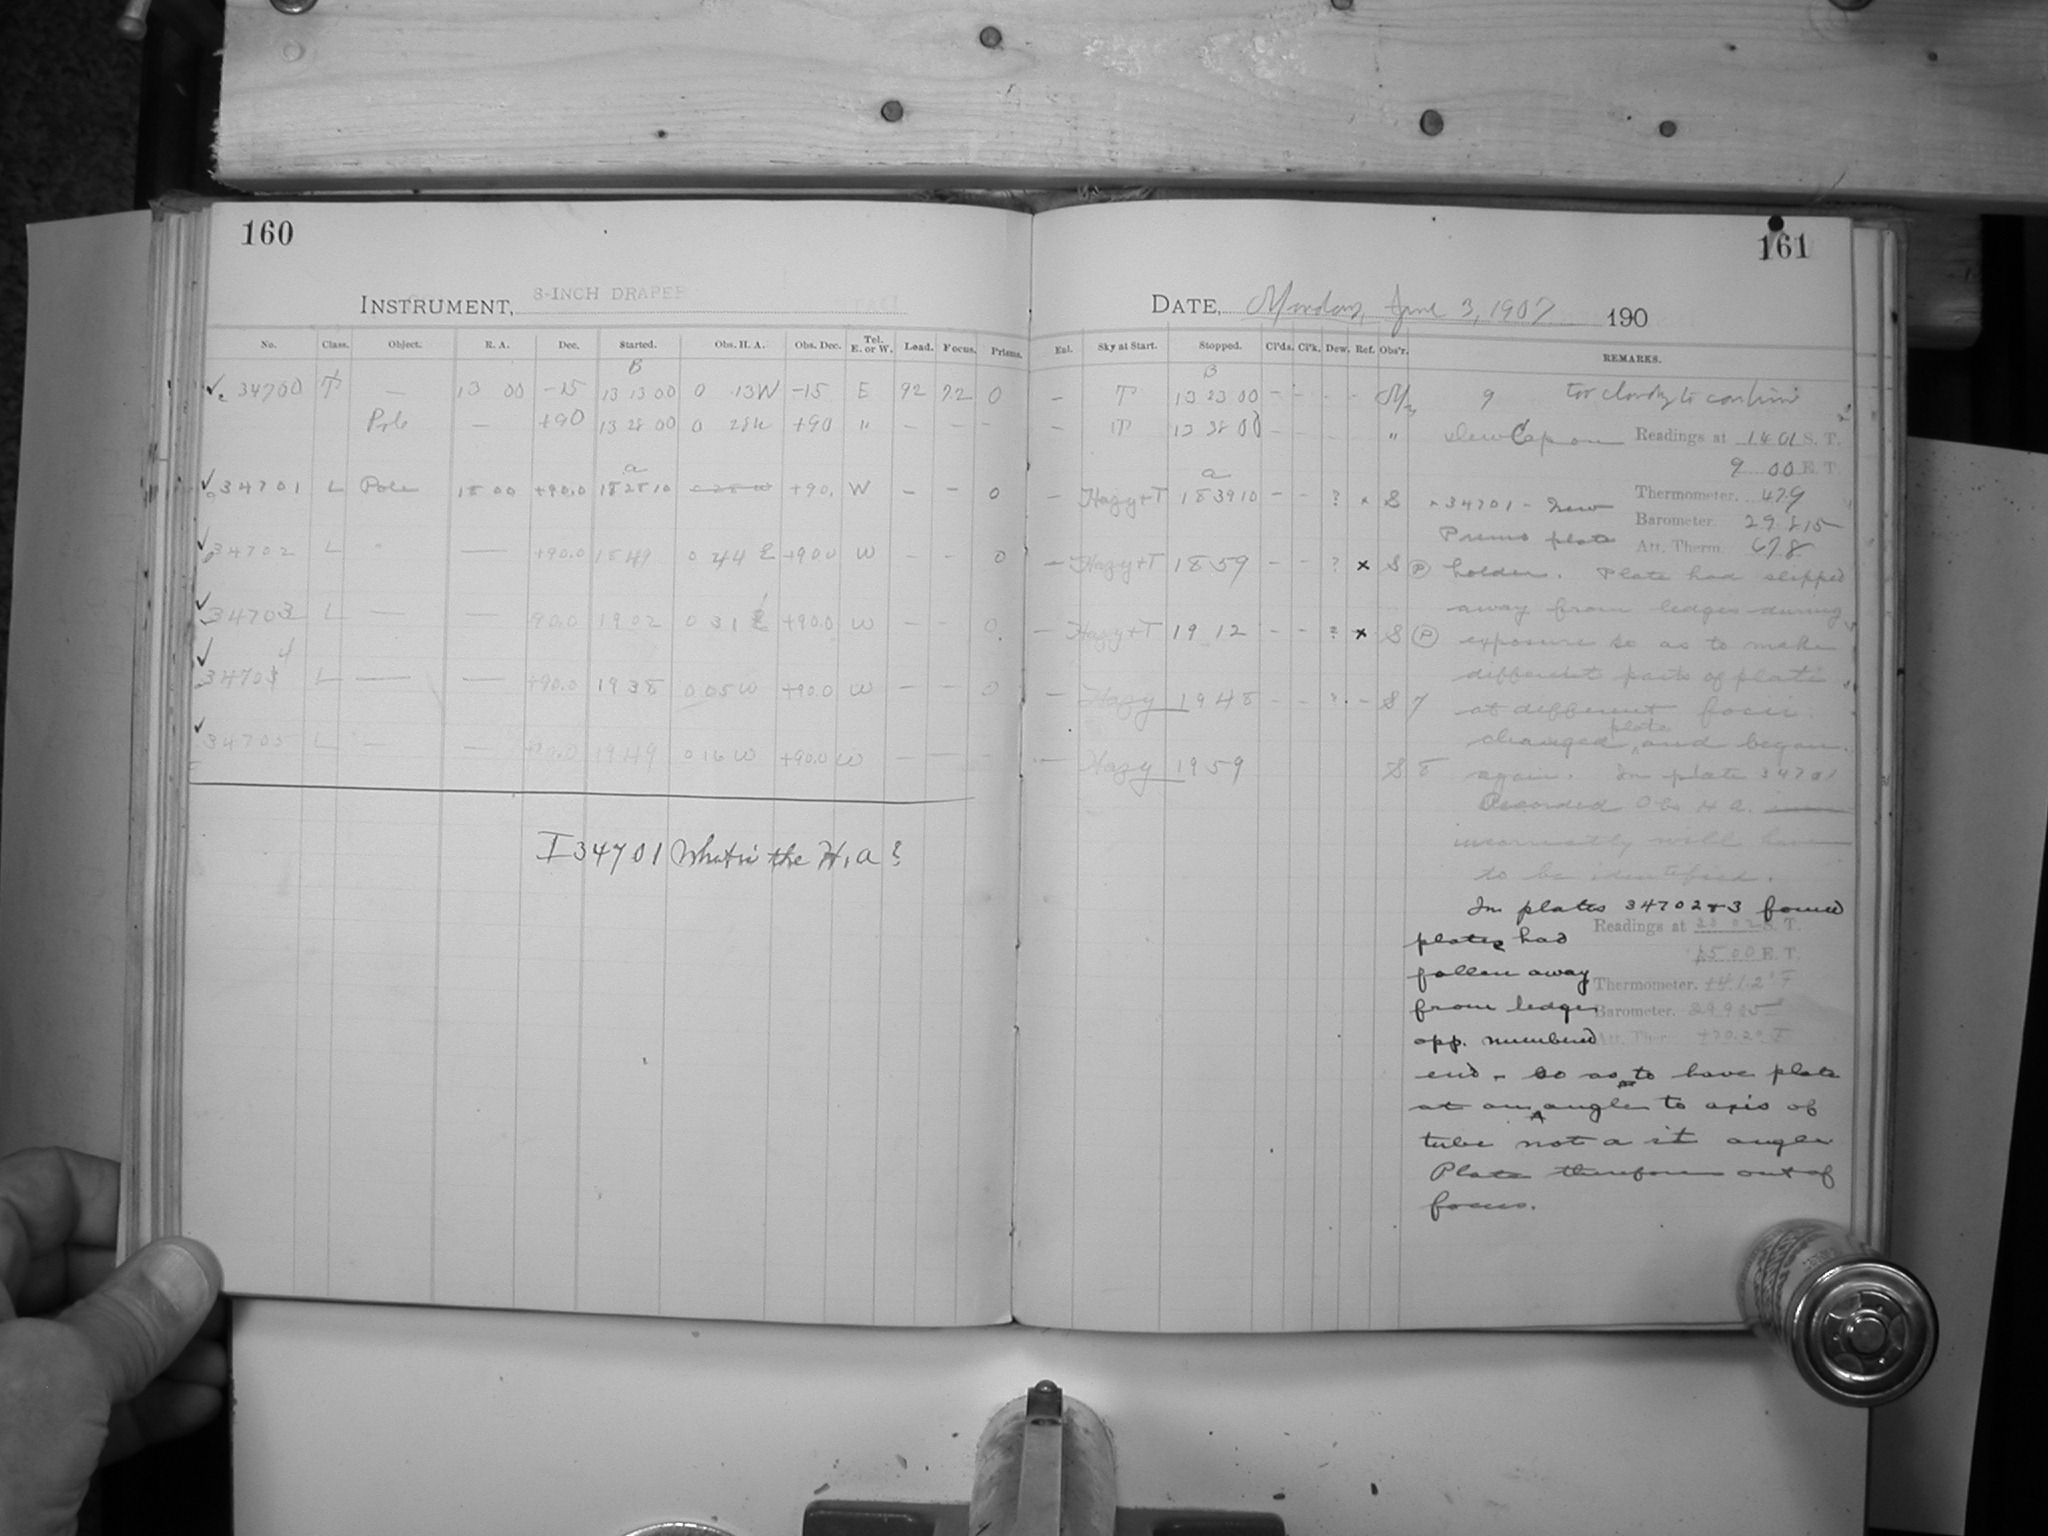 160
161
INSTRUMENT, 8-INCH DRAPER
DATE, Monday, June 3, 1907 190
No. Class. Object. R. A. Dec. Started. Obs. H. A. Obs. Dec. Tel. E. or W. Load. Focus. Prisms. Enl. Sky at Start. Stopped. Cl'ds. Cl'k. Dew. Ref. Obs'r. REMARKS.
B B
34700 T — 13 00 -15 13 13 00 0 13W -15 E 92 7.2 0 — T 13 23 00 - - - - 9 too cloudy to continue
Pole — +90 13 28 00 0 28W +90 " - - - - T 13 38 00 - - - - " Dew Cap on
Readings at 14 01 S. T.
9 00 E. T.
a a
34701 L Pole 18 00 +90.0 18 28 10 0 28 W +90. W - - 0 — Hazy+T 18 39 10 - - ? × S × 34701 - New
Thermometer. 47.9
Barometer. 29.815
Premo plate
Att. Therm. 67.8
34702 L " — +90.0 18 49 0 44 E +90.0 W - - 0 — Hazy+T 18 59 - - ? × S P holder. Plate had slipped
away from ledges during
34703 L — — 90.0 19 02 0 31 E +90.0 W - - 0. — Hazy+T 19 12 - - ? × S P exposure so as to make
different parts of plate
34704 L — — +90.0 19 38 0 05 W +90.0 W - - 0 — Hazy 19 48 - - ? - S 7 at different foci.
plate
changed and began
34705 L — — +90.0 19 49 0 16 W +90.0 W - — - — Hazy 19 59 S 8 again. In plate 34701
Recorded Obs H A.
incorrectly will have
to be identified.
I 34701 What is the H. A?
In plates 34702+3 found
Readings at 23 02 S. T.
plates had
15 00 E. T.
fallen away
Thermometer. +41.2° F
from ledge
Barometer. 29.905
opp. numbered
Att. Ther. +70.2° F
end - so as to have plate
at an angle to axis of
tube not a rt angle
Plate therefore out of
focus.